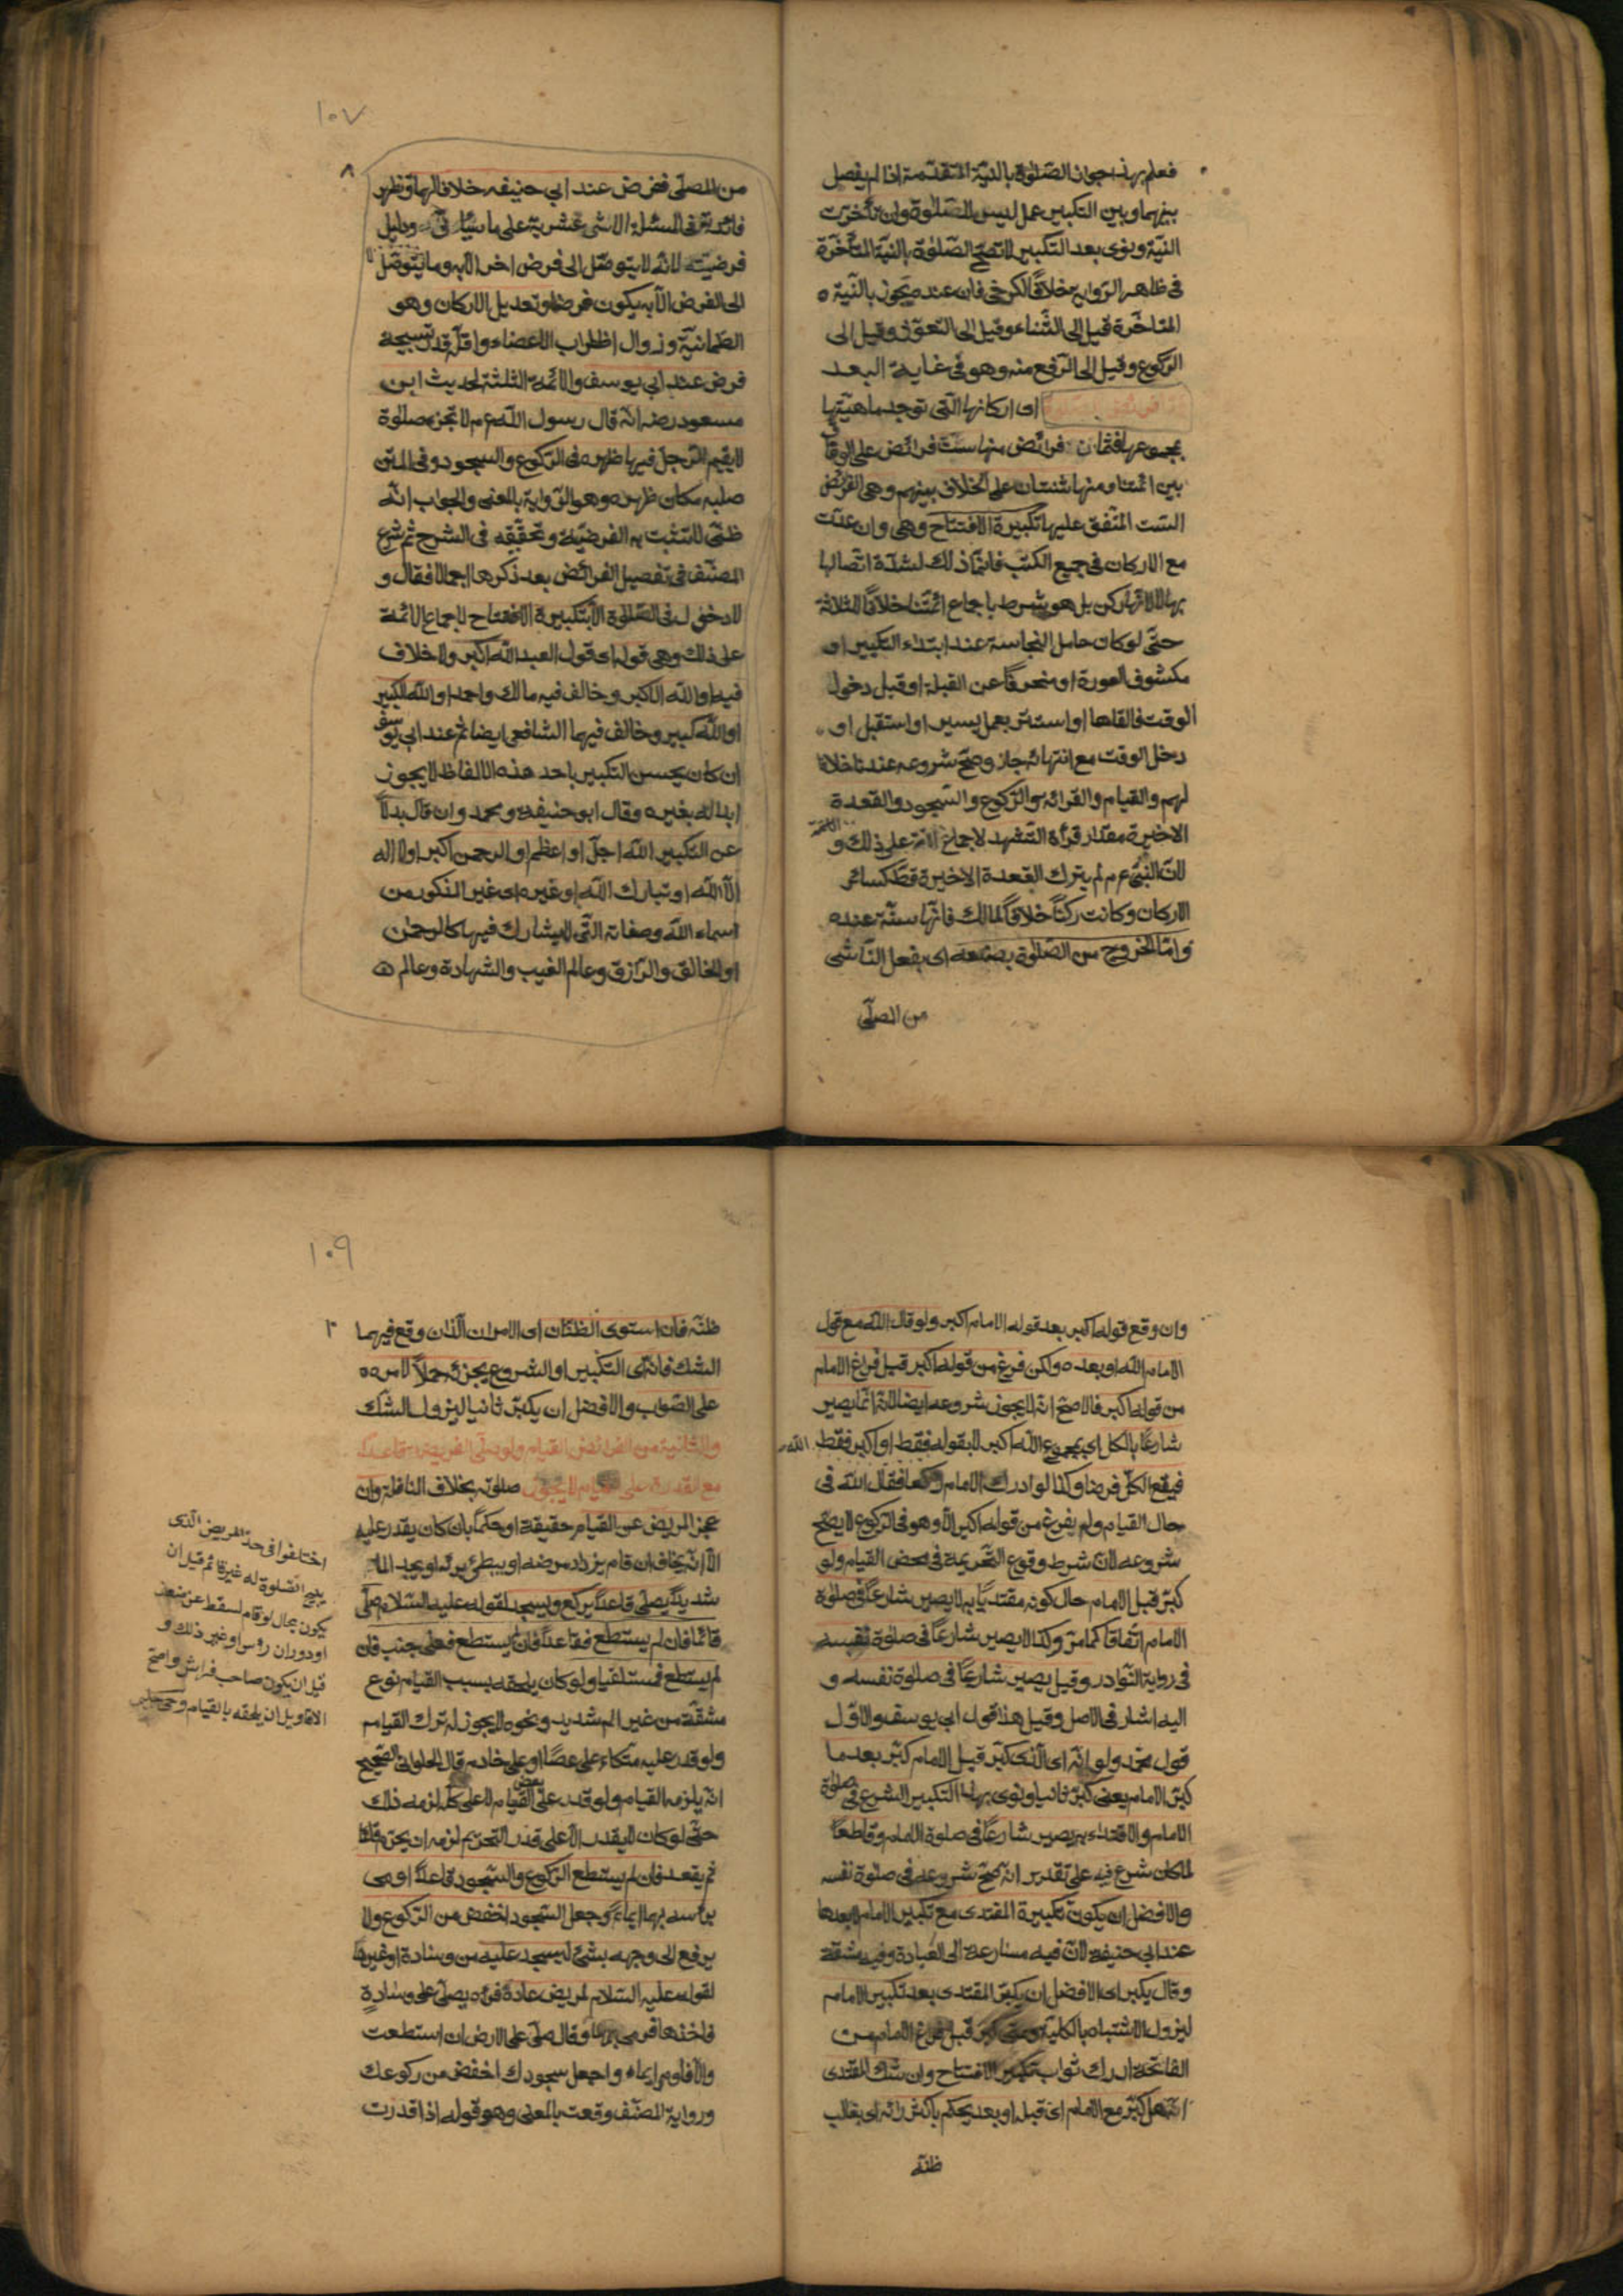 فعلم بهذا جواز الصلوة بالنية المتقدمة اذا لم يفصل
بينهما وبين التكبير عمل ليس للصلوة وان تأخرت
النية ونوى بعد التكبير لا تصح الصلوة بالنية المتأخرة
فى ظاهر الرواية خلافا للكرخى فان عنده يجوز بالنية
المتاخرة قيل الى الثناء وقيل الى التعوذ وقيل الى
الركوع وقيل الى الرفع منه وهو فى غاية البعد
اى اركانها التى توجد ماهيتها
بمجموعها فثمان فرائض منها ست فرائض على الوفاق
بين ائمتنا ومنها ثنتان على الخلاف بينهم وهى الفرائض
الست المتفق عليها تكبيرة الافتتاح وهى وان عدت
مع الاركان فى جميع الكتب فانما ذلك لشدة اتصالها
بها لا لانها ركن بل هو شرط باجماع ائمتنا خلافا للثلاثة
حتى لو كان حامل النجاسة عند ابتداء التكبير او
مكشوف العورة او منحرفا عن القبلة او قبل دخول
الوقت فالقاها او استتر بعمل يسير او استقبل او
دخل الوقت مع انتهائه جاز وصح شروعه عندنا خلافا
لهم والقيام والقرائة والركوع والسجود والقعدة
الاخيرة مقدار قرأة التشهد لاجماع الائمة على ذلك و
لان النبى عم لم يترك القعدة الاخيرة قط كسائر
الاركان وكانت ركنا خلافا لمالك فانها سنة عنده
واما الخروج من الصلوة بصنعه اى بفعل الناشى
من المصلى
١٠٧
٨
من المصلى ففرض عند ابى حنيفه خلافا لهما وتظهر
فائدته فى المسئلة الاثنى عشرية على ما سيأتى ودليل
فرضيته لانه لا يتوصل الى فرض اخر الا به وما لا يتوصل
الى الفرض الا به يكون فرضا وتعديل الاركان وهو
الطمانية وزوال اظطراب الاعضاء واقله قدر تسبيحة
فرض عند ابى يوسف والائمة الثلثة لحديث ابن
مسعود رضه انه قال رسول الله عم لا تجزء صلوة
لا يقيم الرجل فيها ظهره فى الركوع والسجود وفى المتن
صلبه مكان ظهره وهو الرواية بالمعنى والجواب انه
ظنى لا تثبت به الفرضية وتحقيقه فى الشرح ثم شرع
المصنف فى تفصيل الفرائض بعد ذكرها اجمالا فقال و
لا دخول له فى الصلوة الا بتكبيرة الافتتاح لاجماع الائمة
على ذلك وهى قوله اى قول العبد الله اكبر ولا خلاف
فيه او الله الاكبر وخالف فيه مالك واحمد او الله الكبير
او الله كبير وخالف فيهما الشافعى ايضا ثم عند ابى يوسف
ان كان يحسن التكبير باحد هذه الالفاظ لا يجوز
ابداله بغيره وقال ابو حنيفة ومحمد وان قال بدلا
عن التكبير الله اجل او اعظم او الرحمن اكبر او لا اله
الا الله او تبارك الله او غيره اى غير المذكور من
اسماء الله وصفاته التى لا يشارك فيها كالرحمن
او الخالق والرازق وعالم الغيب والشهادة وعالم
وان وقع قوله اكبر بعد قوله الامام اكبر ولو قال الله مع قول
الامام الله او بعده ولكن فرغ من قوله اكبر قبل فراغ الامام
من قوله اكبر فالاصح انه لا يجوز شروعه ايضا لانه انما يصير
شارعا بالكل اى بمجموع الله اكبر لا بقوله فقط او اكبر فقط
الله
فيقع الكل فرضا وكذا لو ادرك الامام راكعا فقال الله فى
حال القيام ولم يفرغ من قوله اكبر الا وهو فى الركوع لا يصح
شروعه لان شرط وقوع التحريمة فى محض القيام ولو
كبر قبل الامام حال كونه مقتديا به لا يصير شارعا فى صلوة
الامام اتفاقا كما مر وكذا لا يصير شارعا فى صلوة نفسه
فى رواية النوادر وقيل يصير شارعا فى صلوة نفسه و
اليه اشار فى الاصل وقيل هذا قول ابى يوسف والاول
قول محمد ولو انه اى الذى كبر قبل الامام كبر بعد ما
كبر الامام يعنى كبر ثانيا ونوى بهذا التكبير الشرع فى صلوة
الامام والاقتداء به يصير شارعا فى صلوة الامام وقاطعا
لما كان شرع فيه على تقدير انه صح شروعه فى صلوة نفسه
والافضل ان يكون تكبيرة المقتدى مع تكبير الامام لا بعدها
عند ابى حنيفة لان فيه مسارعة الى العبادة وفيه مشقة
وقال يكبر اى الافضل ان يكبر المقتدى بعد تكبير الامام
ليزول الاشتباه بالكلية ومتى كبر قبل فراغ الامام من
الفاتحة ادرك ثواب تكبير الافتتاح وان شك المقتدى
انه هل كبر مع الامام اى قبله او بعد يحكم باكثر رائه اى بغالب
ظنه
١٠٩
ظنه فان استوى الظنان اى الامران الذان وقع فيهما
الشك فانه اى التكبير او الشروع يجزئه حملا لامره
على الصواب والافضل ان يكبر ثانيا ليزول الشك
والثانية من الفرائض القيام ولو صلى الفريضة قاعدا
مع القدرة على القيام لا يجوز صلوته بخلاف النافلة وان
عجز المريض عن القيام حقيقة او حكما بان كان يقدر عليه
الا انه يخاف ان قام يزداد مرضه او يبطئ برئه او يجد الما
شديدا يصلى قاعدا يركع ويسجد لقوله عليه السلام صل
قائما فان لم يستطع فقاعدا فان لم يستطع فعلى جنب فان
لم يستطع فمستلقيا ولو كان يلحقه بسبب القيام نوع
مشقة من غير الم شديد ونحوه لا يجوز له ترك القيام
ولو قدر عليه متكاء على عصا او على خادم قال الحلوانى الصحيح
انه يلزمه القيام ولو قدر على بعض القيام لا على كله لزمه ذلك
حتى لو كان لا يقدر الا على قدر التحريم لزمه ان يحرم قائما
ثم يقعد فان لم يستطع الركوع والسجود قاعدا اومى
برأسه بهما ايماء وجعل السجود اخفض من الركوع ولا
يرفع الى وجهه بشئ ليسجد عليه من وسادة او غيرها
لقوله عليه السلام لمريض عاده فرءه يصلى على وسادة
فاخذها فرمى بها وقال صل على الارض ان استطعت
والا فاوم ايماء واجعل سجودك اخفض من ركوعك
ورواية المصنف وقعت بالمعنى وهو قوله اذا قدرت
اختلفوا فى حد المريض الذى
يبيح الصلوة له غير قائم قيل ان
يكون بحال لو قام لسقط عن ضعف
او دوران رؤس او غير ذلك و
قيل ان يكون صاحب فراش واصح
الاقاويل ان يلحقه بالقيام